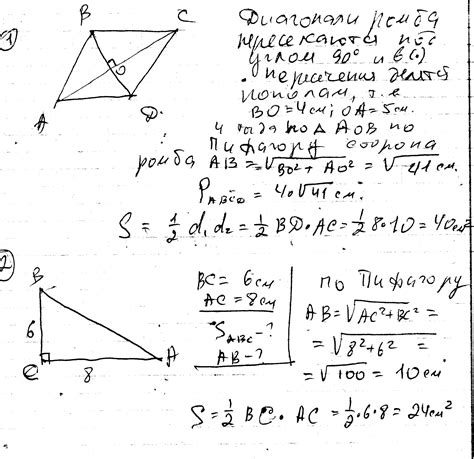 1
B C
O
A D
Диагонали ромба
пересекаются под
углом 90° и в (·)
пересечения делятся
пополам, т.е
BO=4см; OA=5см.
из △AOB по
Пифагору сторона
ромба AB=√BO²+AO² = √41 см.
P_ABCD = 4·√41 см.
S = 1/2 d₁d₂ = 1/2 BD·AC = 1/2 8·10 = 40см²
2
B
6
C 8 A
BC = 6см
AC = 8см
S_ABC - ?
AB - ?
по Пифагору
AB = √AC²+BC² =
= √8²+6² =
= √100 = 10 см
S = 1/2 BC · AC = 1/2 · 6 · 8 = 24см²